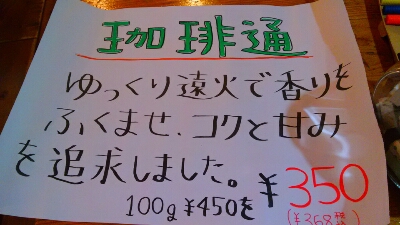 珈琲通
ゆっくり遠火で香りを
ふくませ、コクと甘み
を追求しました。
100g ¥450を ¥350